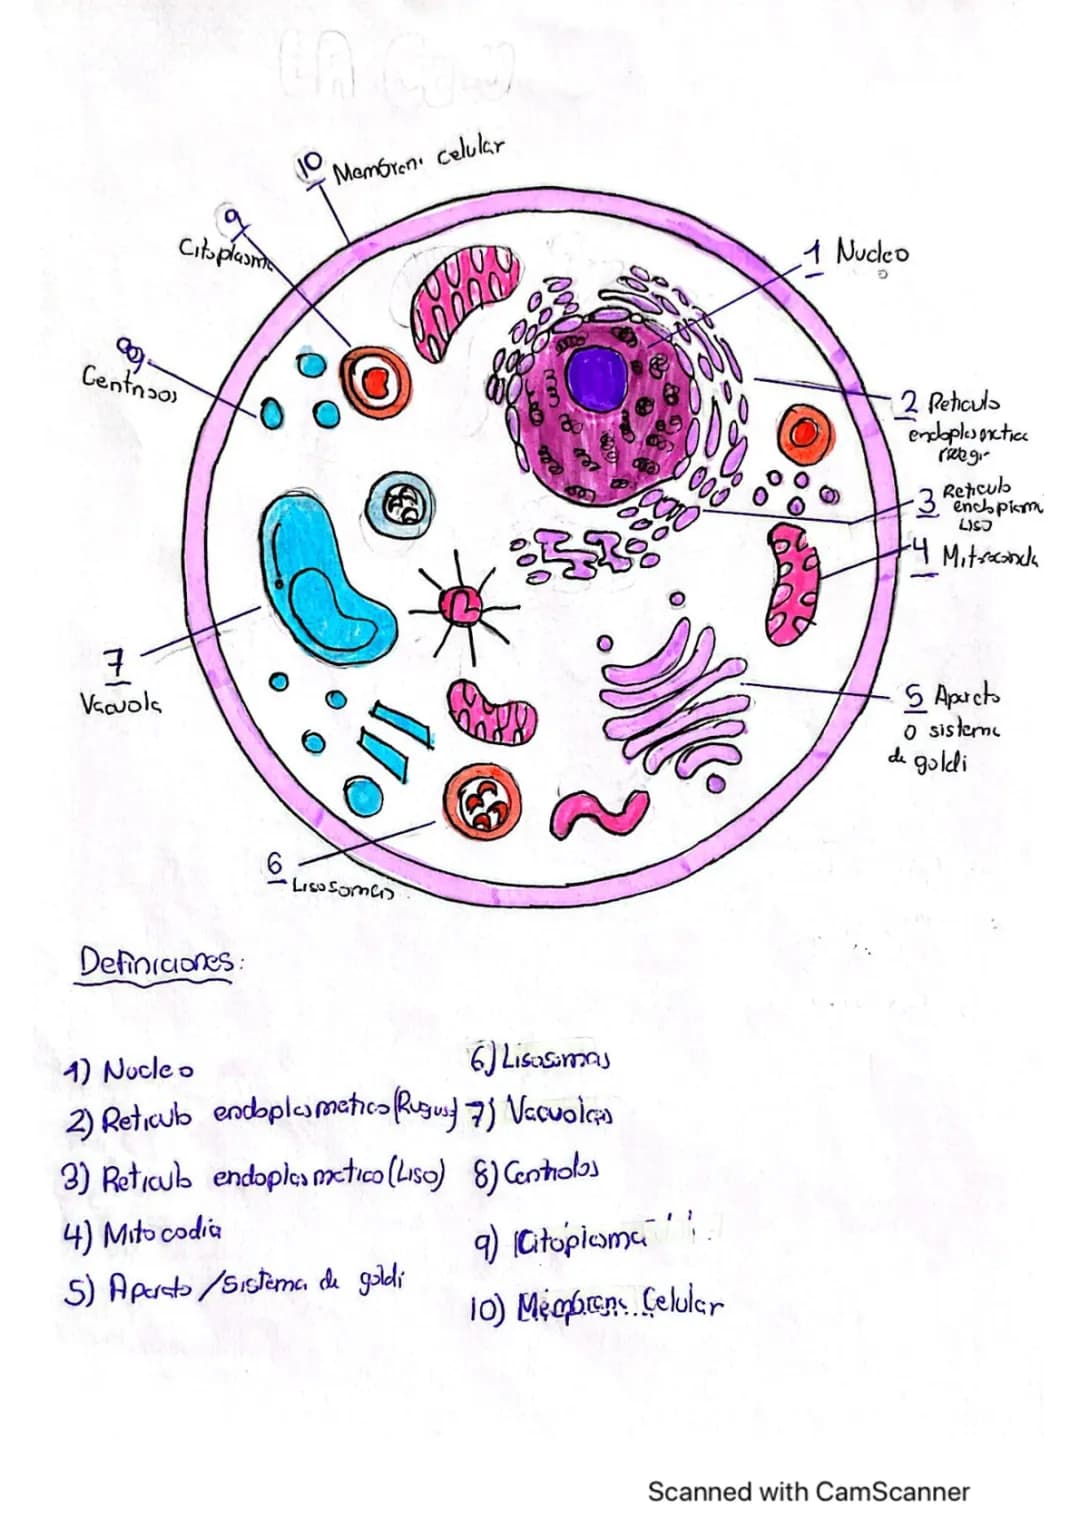 LA
10 Membran celular
9
Citoplasma
1 Nucleo
8
Centrioos
2 Reticulo
endoplasmatico
3 Reticulo
endoplasm
Liso
4 Mitocondr
7
Vacuola
5 Aparato
o sistema
de goldi
6
Lisosomas
Definiciones:
1) Nucleo
2) Reticulo endoplasmatico (Rugus)
3) Reticulo endoplasmatico (Liso)
4) Mitocodia
5) Aparato / Sistema de goldi
6) Lisosomas
7) Vacuolas
8) Centrolos
9) Citoplasma
10) Membrana Celular
Scanned with CamScanner